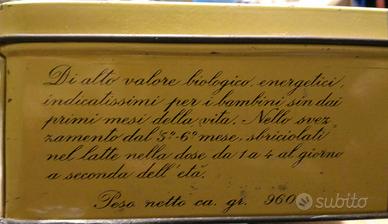 Di alto valore biologico, energetici,
indicatissimi per i bambini sin dai
primi mesi della vita. Nello svez
zamento dal 5º-6º mese, sbriciolati
nel latte nella dose da 1 a 4 al giorno
a seconda dell'età.
Peso netto ca. gr. 960
subito